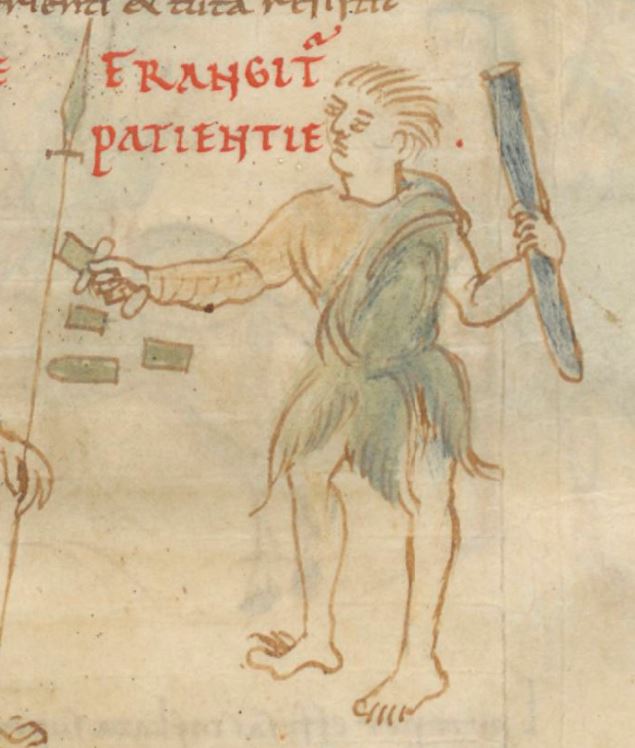 rienti & tuta resistit
FRANGIT̃
PATIENTIE